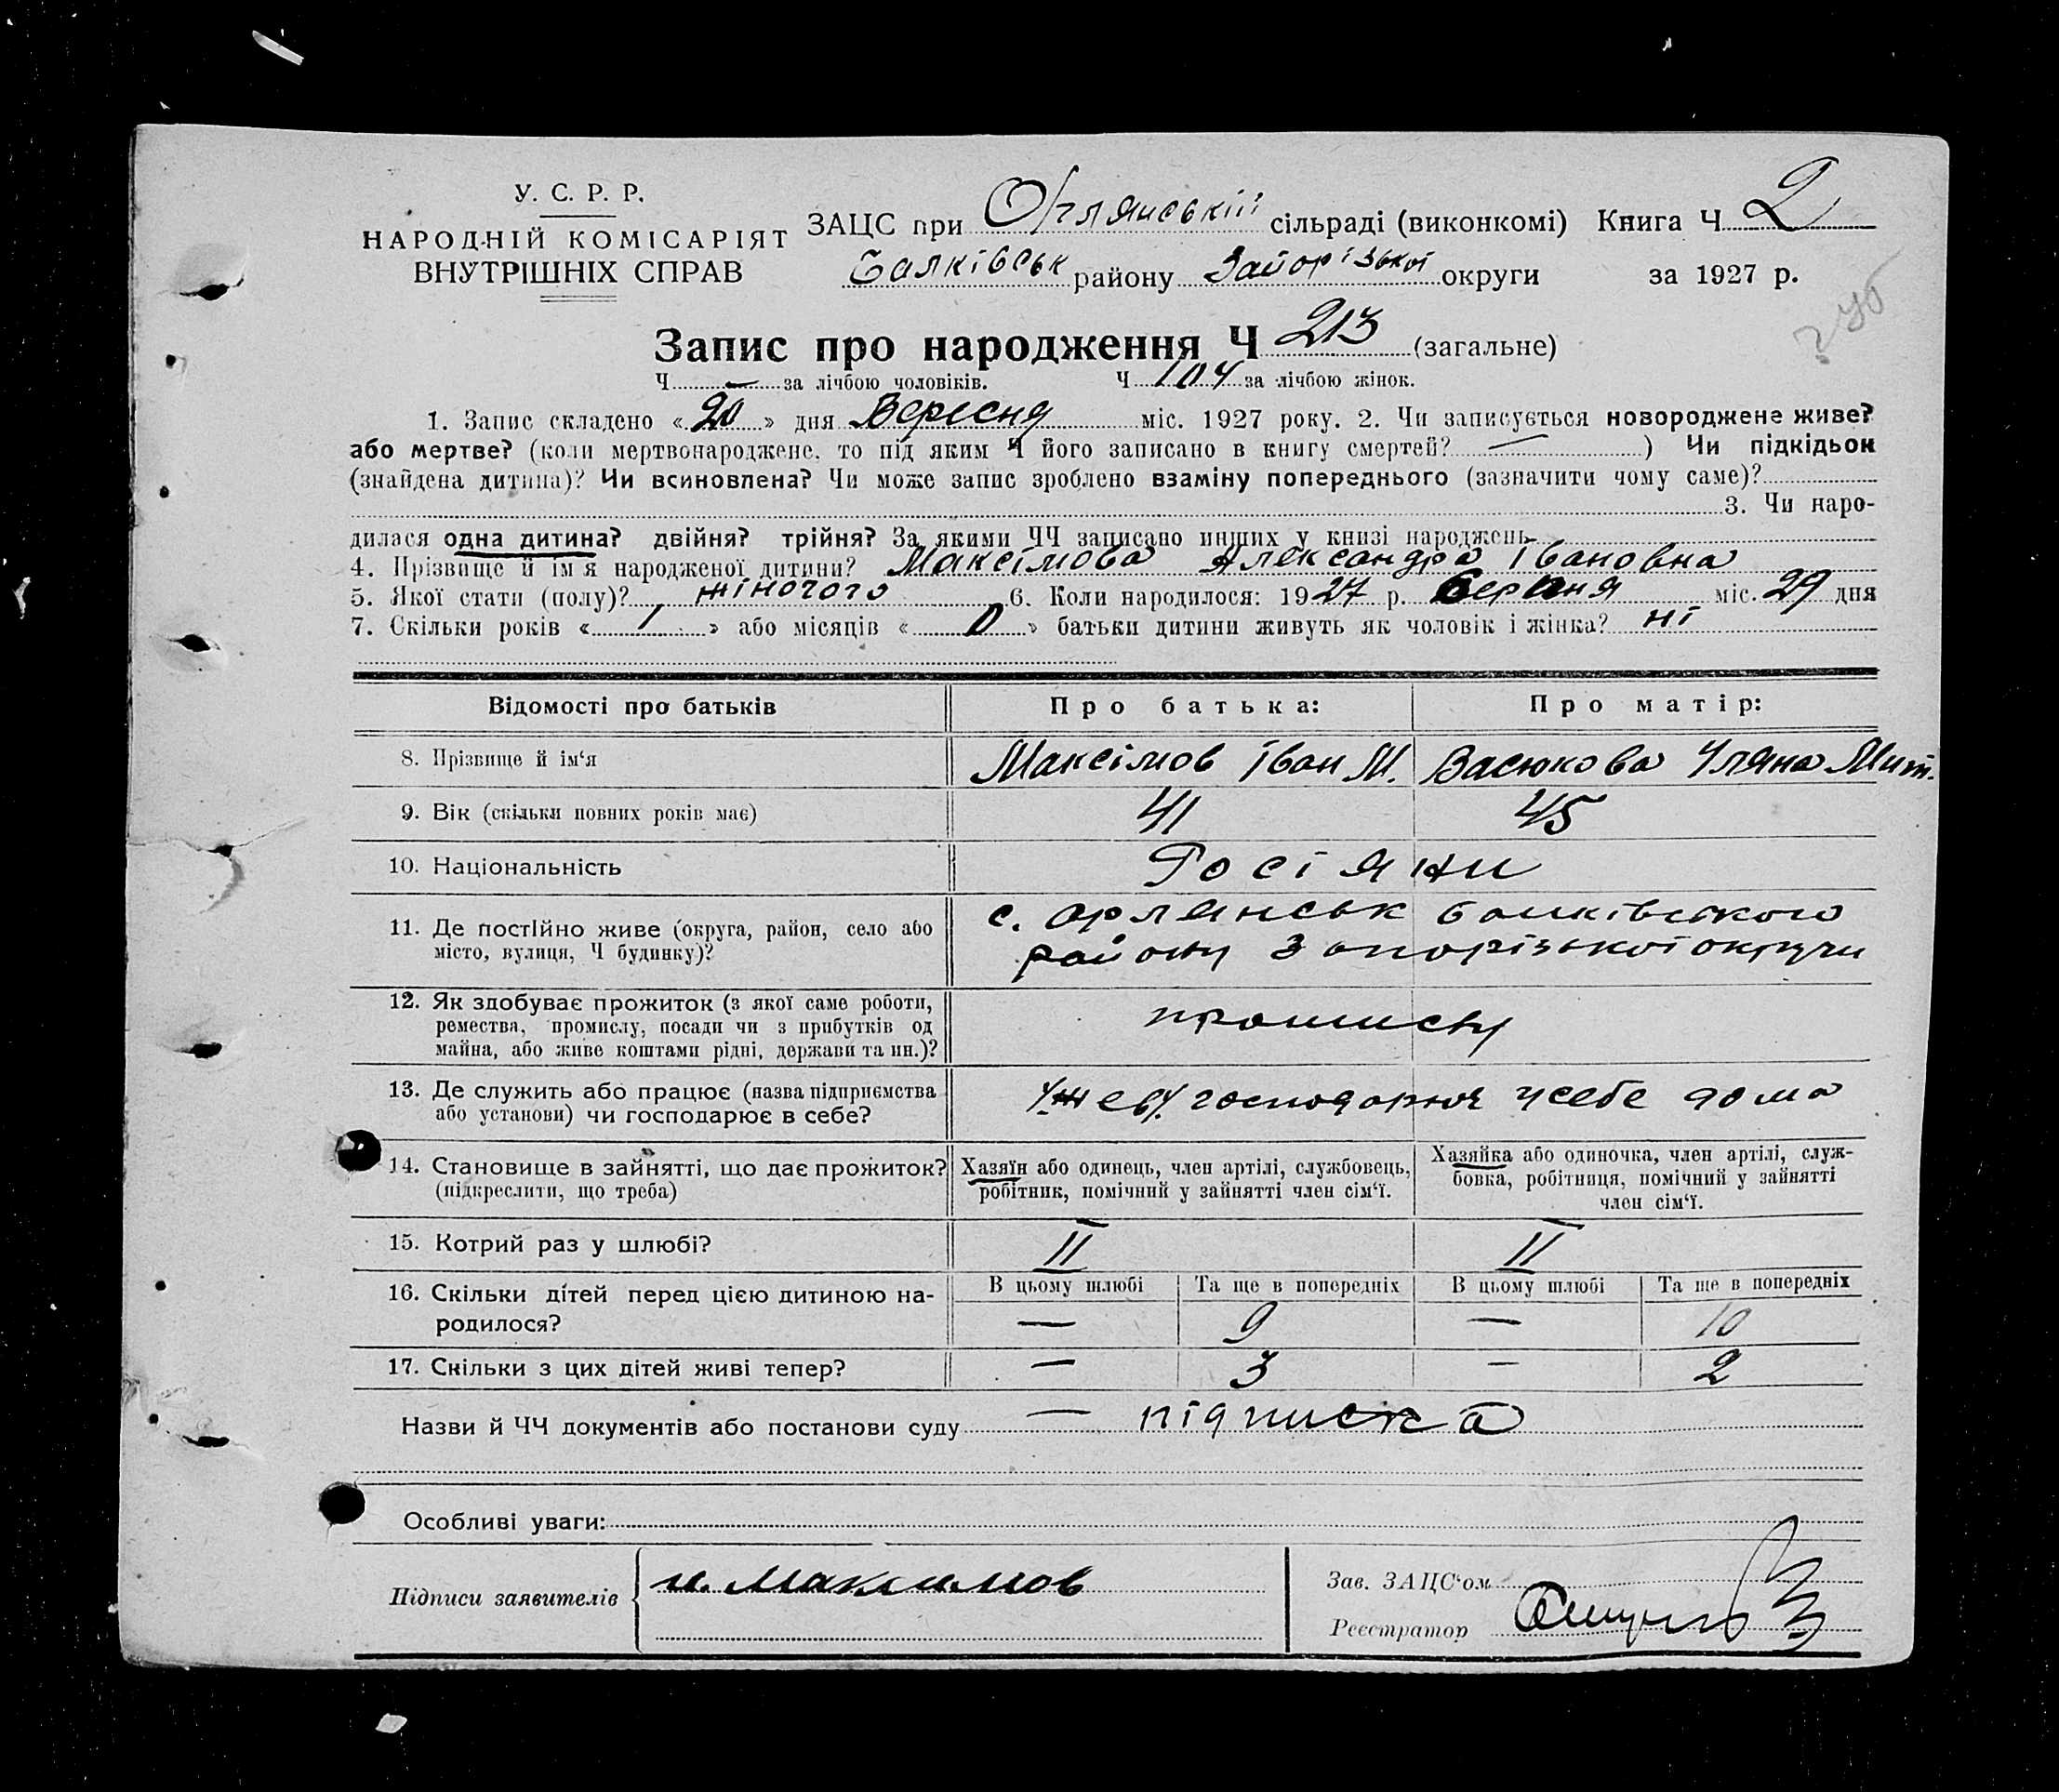 У. С. Р. Р.
НАРОДНІЙ КОМІСАРІЯТ
ВНУТРІШНІХ СПРАВ
ЗАЦС при Орлянській сільраді (виконкомі) Книга Ч 2
Балківськ району Запорізької округи за 1927 р.
Запис про народження Ч 213 (загальне)
Ч — за лічбою чоловіків. Ч 104 за лічбою жінок.
1. Запис складено « 20 » дня Вересня міс. 1927 року. 2. Чи записується новороджене живе?
або мертве? (коли мертвонароджене, то під яким Ч його записано в книгу смертей? — ) Чи підкідьок
(знайдена дитина)? Чи всиновлена? Чи може запис зроблено взаміну попереднього (зазначити чому саме)?
3. Чи наро-
дилася одна дитина? двійня? трійня? За якими ЧЧ записано инших у книзі народжень
4. Прізвище й ім'я народженої дитини? Максімова Александра Івановна
5. Якої стати (полу)? жіночого 6. Коли народилося: 1927 р. Серпня міс. 29 дня
7. Скільки років « 1 » або місяців « 0 » батьки дитини живуть як чоловік і жінка? ні
Відомості про батьків Про батька: Про матір:
8. Прізвище й ім'я Максімов Іван М. Васюкова Уляна Мит.
9. Вік (скільки повних років має) 41 45
10. Національність Росіяни
11. Де постійно живе (округа, район, село або
місто, вулиця, Ч будинку)?
с. Орлянськ Балківського
району Запорізької округи
12. Як здобуває прожиток (з якої саме роботи,
ремества, промислу, посади чи з прибутків од
майна, або живе коштами рідні, держави та ин.)?
13. Де служить або працює (назва підприємства
або установи) чи господарює в себе?
господарює у себе дома
14. Становище в зайнятті, що дає прожиток?
(підкреслити, що треба)
Хазяїн або одинець, член артілі, службовець,
робітник, помічний у зайнятті член сім'ї.
Хазяйка або одиночка, член артілі, служ-
бовка, робітниця, помічний у зайнятті
член сім'ї.
15. Котрий раз у шлюбі? II II
16. Скільки дітей перед цією дитиною на-
родилося?
В цьому шлюбі Та ще в попередніх В цьому шлюбі Та ще в попередніх
— 9 — 10
17. Скільки з цих дітей живі тепер? — 3 — 2
Назви й ЧЧ документів або постанови суду — підписка
Особливі уваги:
Підписи заявителів и. Максимов
Зав. ЗАЦС'ом
Реєстратор